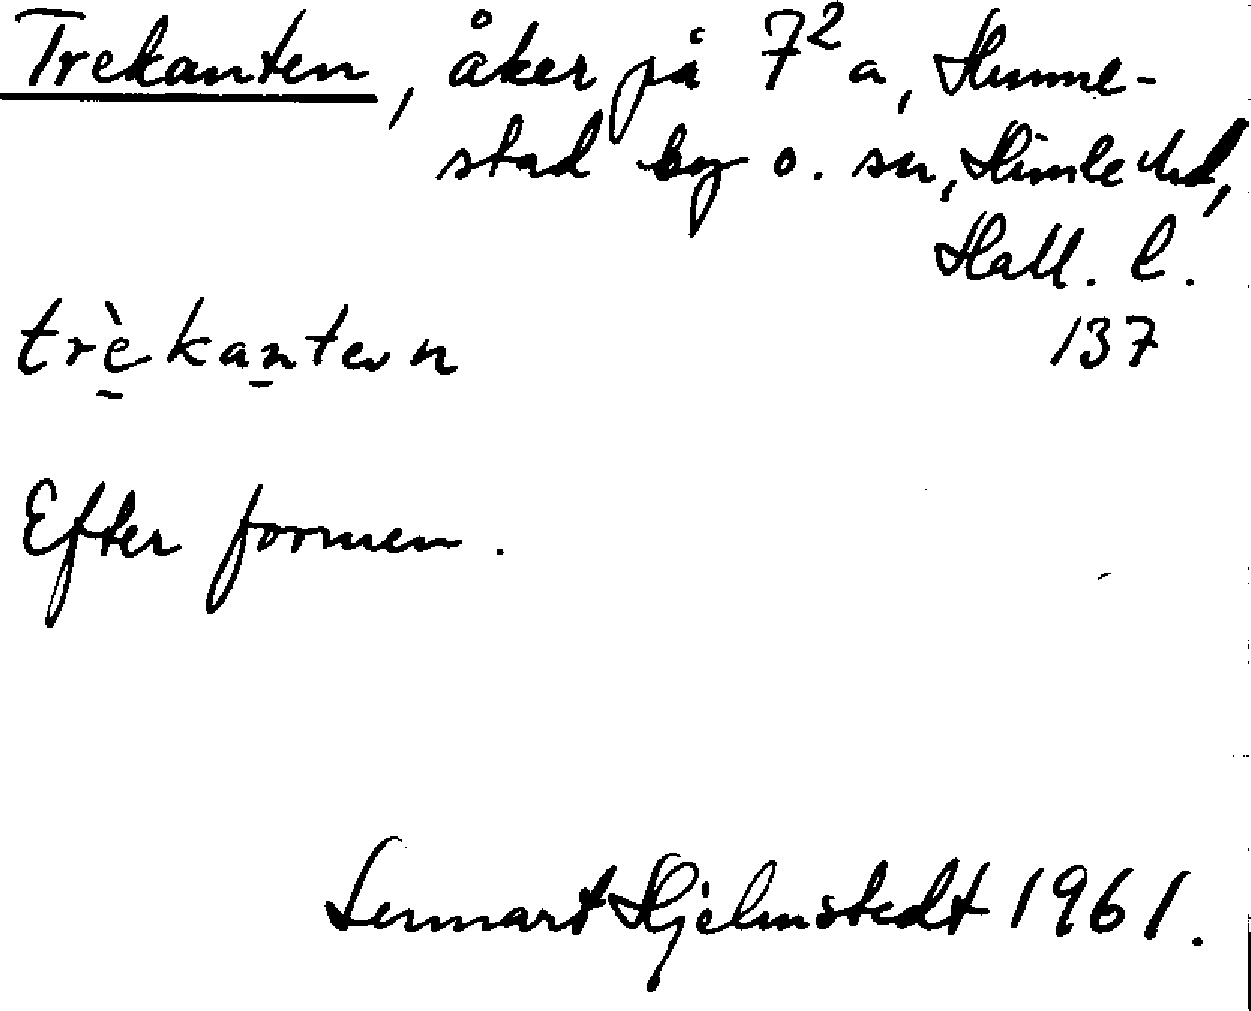 Trekanten, åker på 7² a, Hunne-
stad by o. sn, Himle hd,
Hall. l.
137
trèkantən
Efter formen.
Lennart Hjelmstedt 1961.